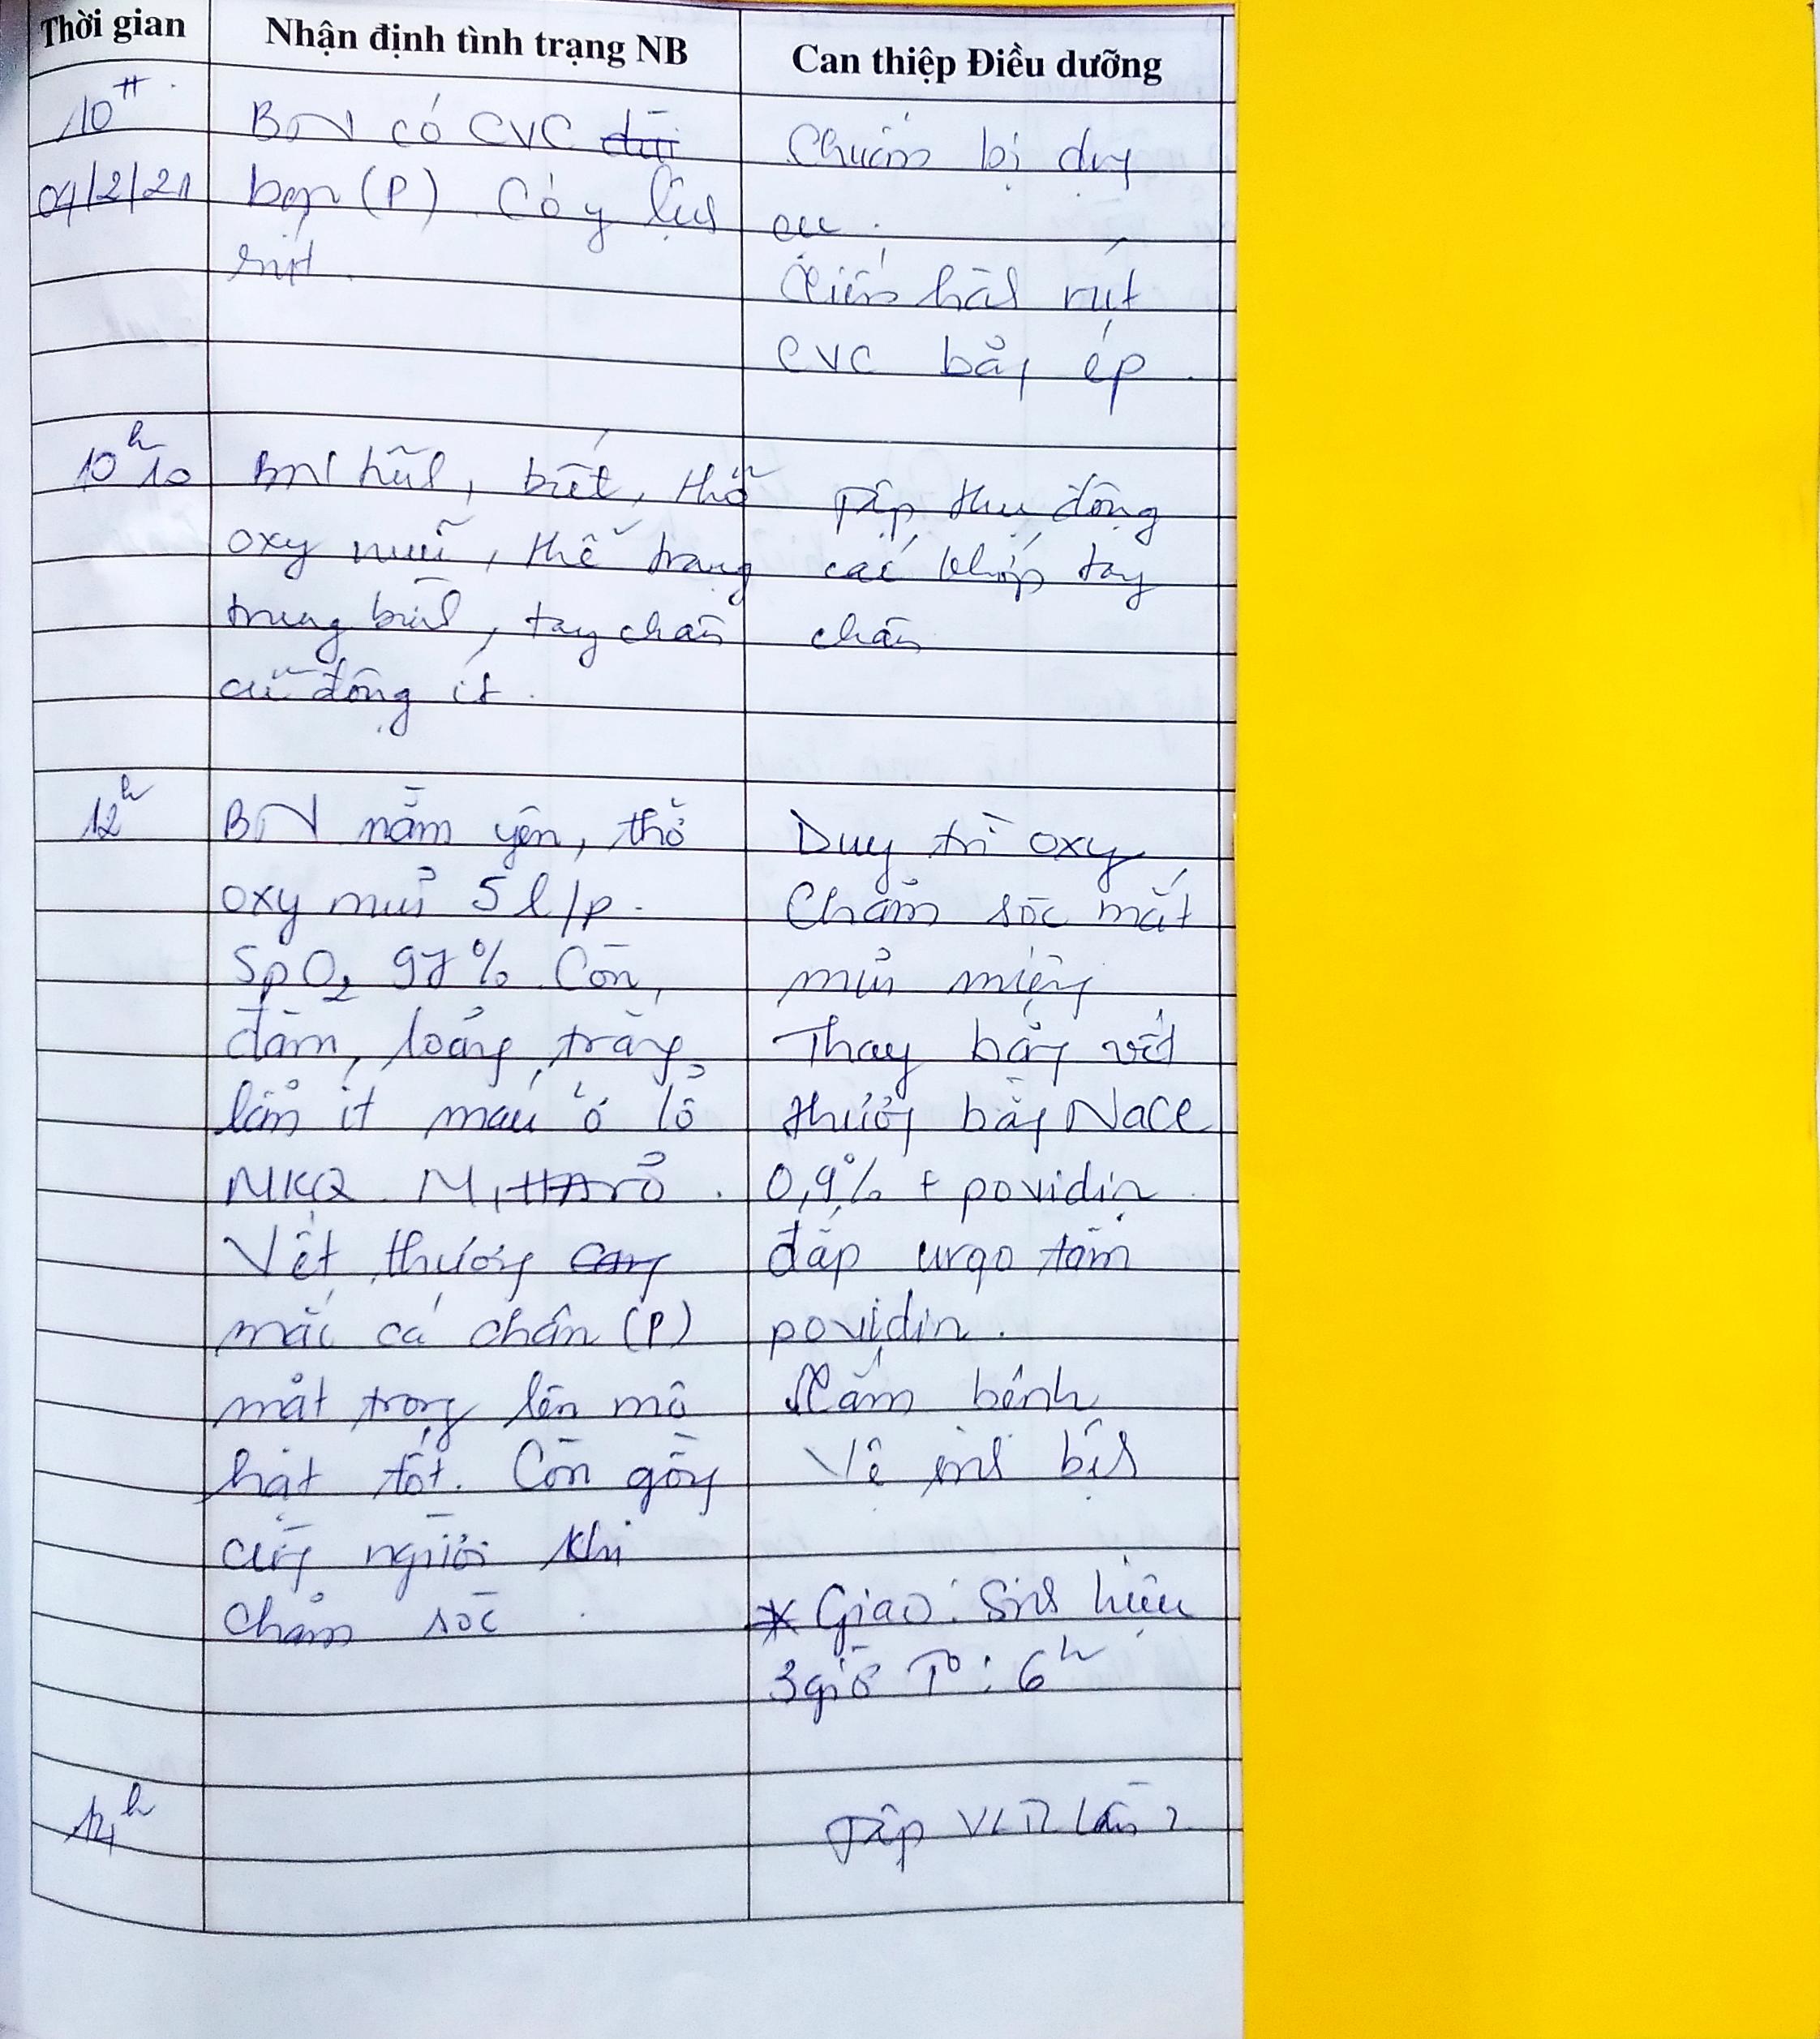 Thời gian
Nhận định tình trạng NB
Can thiệp Điều dưỡng
10H
04/2/21
BN có CVC
bẹn (P). Có y lệnh
rút.
Chuẩn bị dụng
cụ.
Tiến hành rút
CVC băng ép.
10h10
BN tỉnh, biết, thở
oxy mũi, thể trạng
trung bình, tay chân
cử động ít.
Tập thụ động
các khớp tay
chân
12h
BN nằm yên, thở
oxy mũi 5 l/p.
SpO2 97% Còn
đàm, loãng, trắng,
lẫn ít máu ở lỗ
MKQ. M, HA rõ.
Vết thương
mắc cá chân (P)
mặt trong lên mô
hạt tốt. Còn gồng
cứng người khi
chăm sóc
Duy trì oxy
Chăm sóc mắt
mũi miệng
Thay băng vết
thương bằng NaCl
0,9% + povidin.
đắp urgo tẩm
povidin.
Tắm bệnh
Vệ sinh
* Giao: Sinh hiệu
3 giờ To: 6h
14h
Tập VLTL lần 2